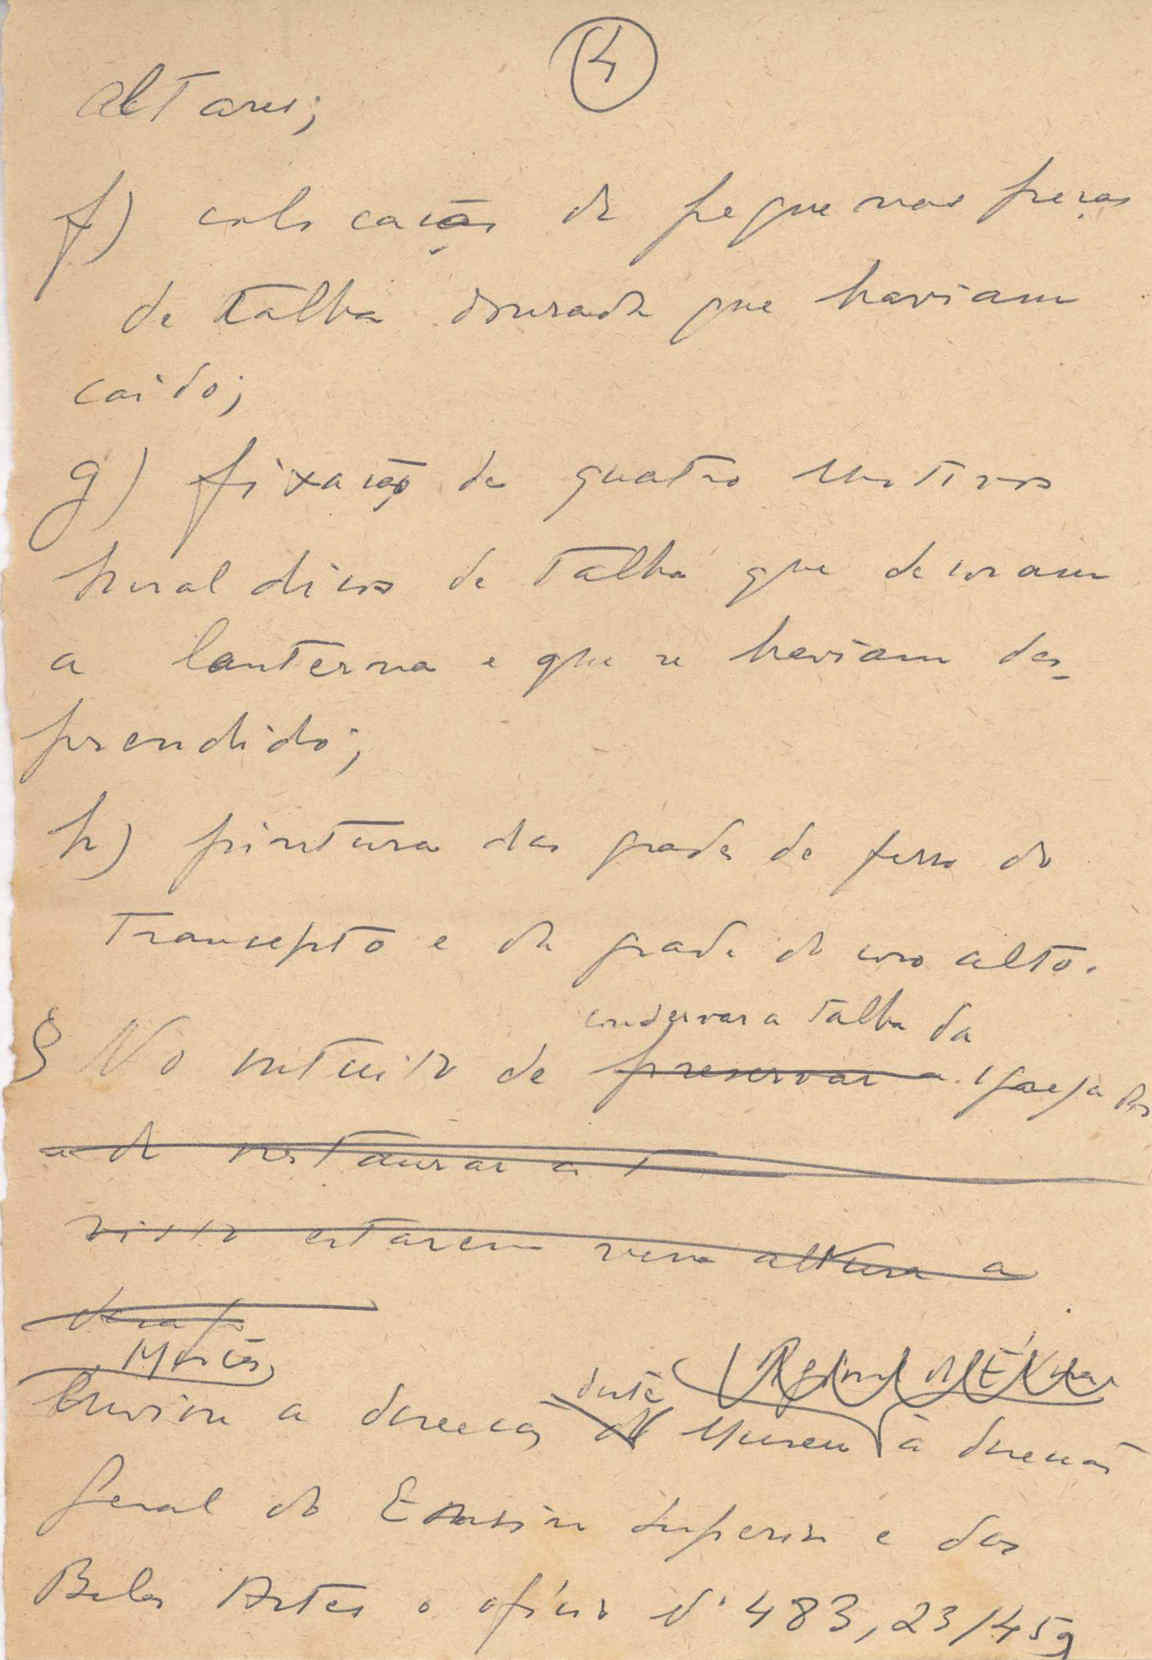 4
altares;
f) colocação de pequenas peças
de talha dourada que haviam
caido;
g) fixação de quatro motivos
heraldicos de talha que decoram
a lanterna e que se haviam des-
prendido;
h) pintura das grades de ferro do
transepto e da grade do coro alto.
conservar a talha da
§ No intuito de preservar a Igreja das
e de restaurar a t
visto estarem nessa altura a
Mercês,
deste Regional de Évora
Enviou a direcção do Museu à direcção
Geral do Ensino Superior e das
Belas Artes o ofício Nº 483, 23/459